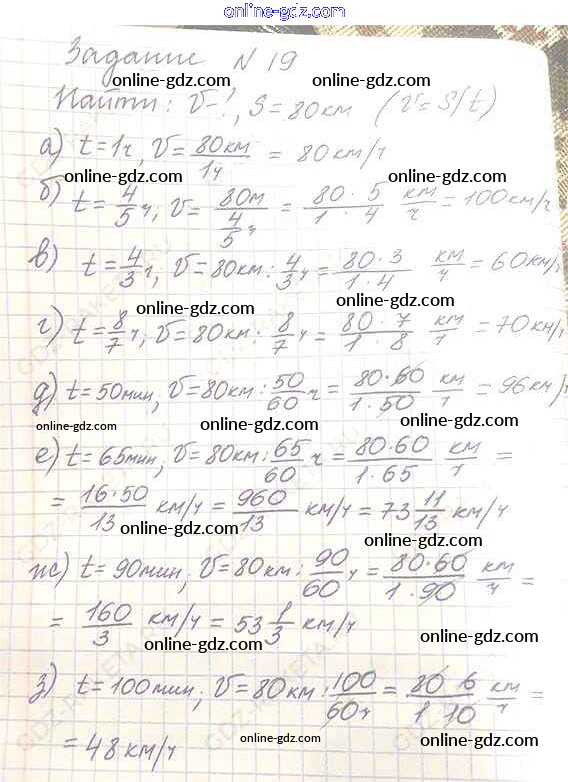 online-gdz.com
Задание N 19
online-gdz.com online-gdz.com
Найти: V-?, S=80км (V=S/t)
online-gdz.com
а) t=1ч, V=80км/1ч = 80км/ч
online-gdz.com
б) t=4/5ч; V=80м/4/5ч = 80·5/1·4 км/ч = 100км/ч
online-gdz.com online-gdz.com
в) t=4/3ч, V=80км:4/3ч=80·3/1·4 км/ч=60км/ч
online-gdz.com online-gdz.com
г) t=8/7ч, V=80км:8/7ч=80·7/1·8 км/ч=70км/ч
online-gdz.com
д) t=50мин, V=80км:50/60ч=80·60/1·50 км/ч=96км/ч
online-gdz.com online-gdz.com
е) t=65мин, V=80км:65/60ч=80·60/1·65 км/ч=
=16·50/13 км/ч=960/13 км/ч=73 11/13 км/ч
online-gdz.com online-gdz.com
ж) t=90мин; V=80км:90/60ч=80·60/1·90 км/ч=
=160/3 км/ч=53 1/3 км/ч
online-gdz.com online-gdz.com
з) t=100мин; V=80км:100/60ч=80 6/1 10 км/ч=
online-gdz.com online-gdz.com
=48км/ч
online-gdz.com online-gdz.com